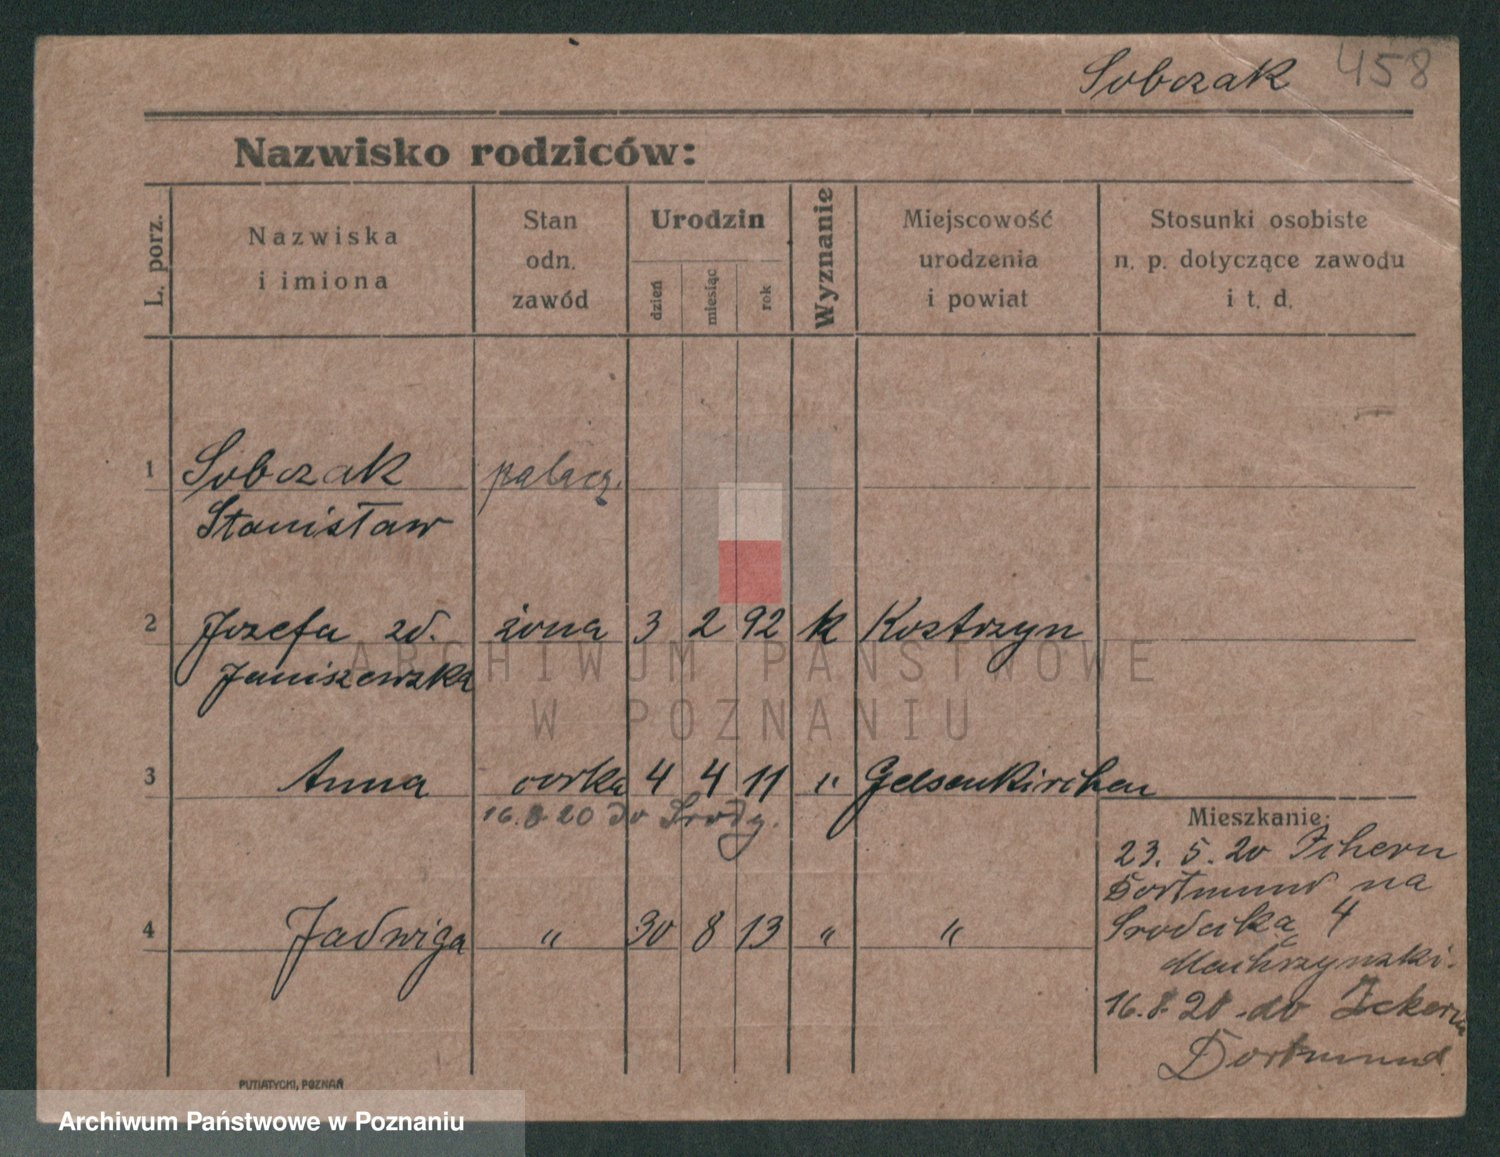 Sobczak 458
Nazwisko rodziców:
L. porz.
Nazwiska
i imiona
Stan
odn.
zawód
Urodzin
dzień
miesiąc
rok
Wyznanie
Miejscowość
urodzenia
i powiat
Stosunki osobiste
n. p. dotyczące zawodu
i t. d.
1 Sobczak palacz.
Stanisław
2 Józefa zd. żona 3 2 92 k Kostrzyn
Janiszewska
ARCHIWUM PAŃSTWOWE
W POZNANIU
3 Anna córka 4 4 11 " Gelsenkirchen
16.8.20 do Środy.
4 Jadwiga " 30 8 13 " "
Mieszkanie:
23. 5. 20
Dortmund na
4
16.8.20 do
Dortmund
PUTIATYCKI, POZNAŃ
Archiwum Państwowe w Poznaniu